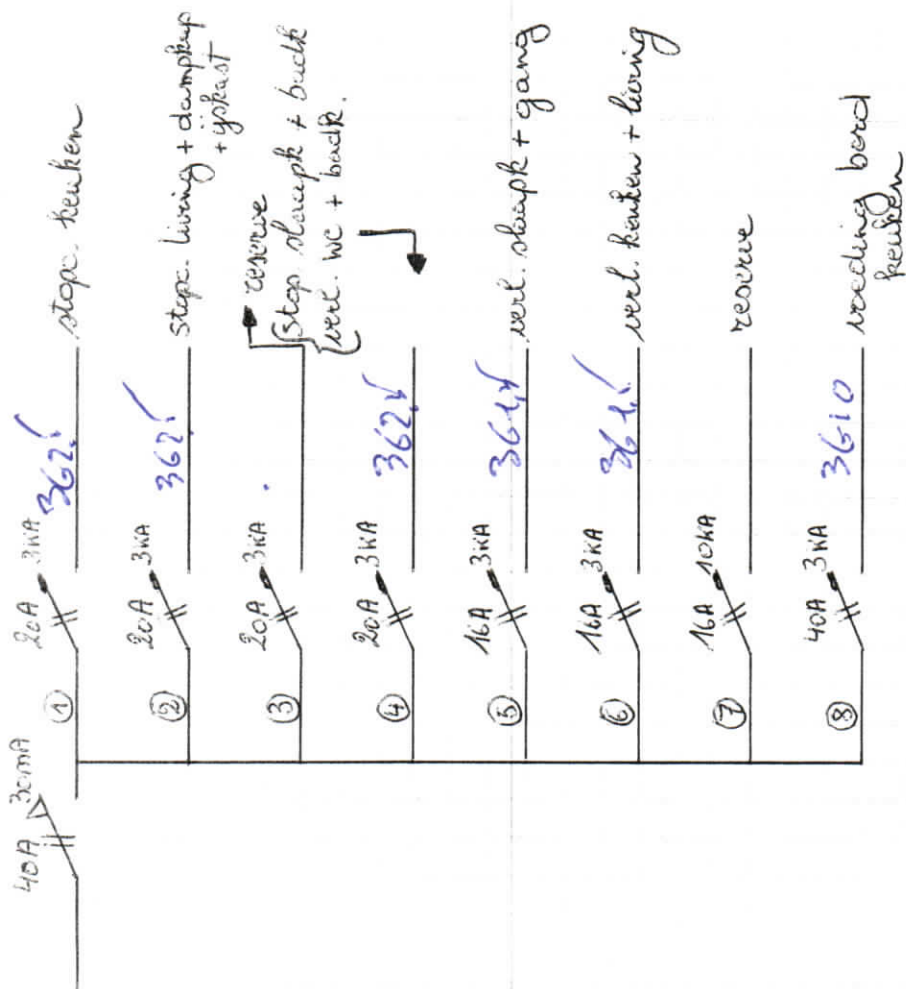 40A 30mA
① 20A 3kA 362 stopc. keuken
② 20A 3kA 362 stopc. living + dampkap
+ yskast
③ 20A 3kA reserve
stop slaapk + badk
verl. wc + badk.
④ 20A 3kA 362
⑤ 16A 3kA 361 verl. slaapk + gang
⑥ 16A 3kA 361 verl. keuken + living
⑦ 16A 10kA reserve
⑧ 40A 3kA 3G10 voeding bord
keuken